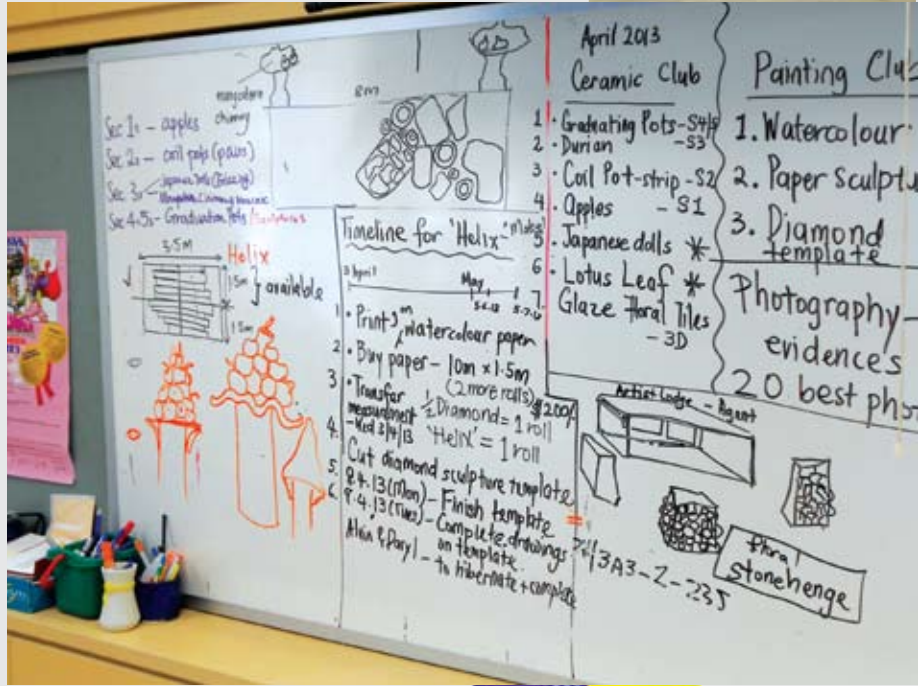 8m
chimney
Sec 1s - apples
Sec 2s - coil pots (pairs)
Sec 3s
Sec 4.5s - Graduation Pots
3.5m
Helix
1.5m
available
1.5m
Timeline for 'Helix'
3 April
May
1 • Prints watercolour paper
2 • Buy paper - 10m x 1.5m
(2 more rolls)
3 • Transfer
measurement
- Wed 3/4/13
½ Diamond = 1 roll
$200/-
'Helix' = 1 roll
4.
Cut diamond sculpture template
5. 8.4.13 (Mon) - Finish template
6. 9.4.13 (Tues) - Complete drawings
on template
Alvin & Daryl - to hibernate + complete
April 2013
Ceramic Club
1 • Graduating Pots - S4/5
2 • Durian - S3
3 • Coil Pot-strip - S2
4 • Apples - S1
5 • Japanese dolls *
6 • Lotus Leaf *
7. Glaze Floral Tiles
- 3D
Painting Club
1. Watercolour
2. Paper Sculptu
3. Diamond
template
Photography -
evidence's
20 best pho
Artist Lodge - Agent
3A3-2-235
floral
stonehenge